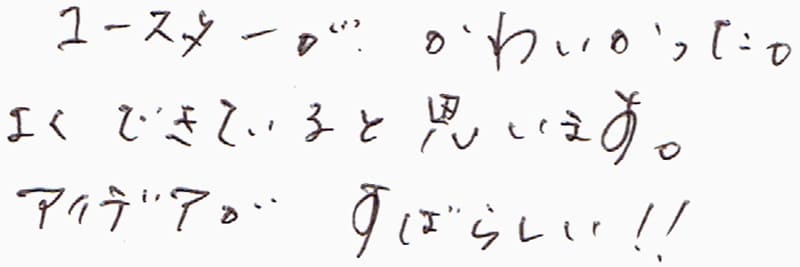 コースターが かわいかった。
よく できていると 思います。
アイデアが すばらしい!!